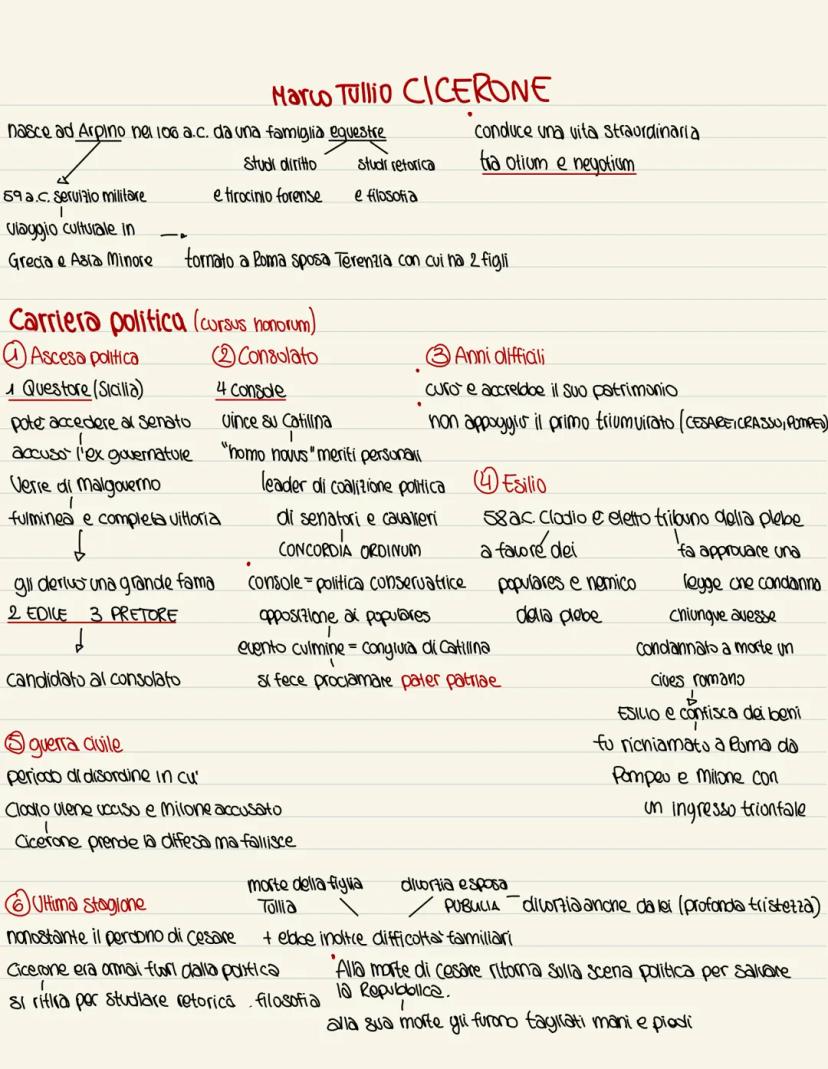 Marco Tullio CICERONE
nasce ad Arpino nel 106 a.c. da una famiglia equestre
studi diritto
e tirocinio forense
studi retorica
e filosofia
conduce una vita straordinaria
tra otium e negotium
59 a.c. servizio militare
viaggio culturale in
Grecia e Asia Minore
tornato a Roma sposa Terenzia con cui ha 2 figli
Carriera politica (cursus honorum)
① Ascesa politica
1 Questore (Sicilia)
poté accedere al senato
accusò l'ex governatore
Verre di malgoverno
fulminea e completa vittoria
gli derivò una grande fama
2 EDILE 3 PRETORE
candidato al consolato
② Consolato
4 console
vince su Catilina
"homo novus" meriti personali
leader di coalizione politica
di senatori e cavalieri
CONCORDIA ORDINUM
console = politica conservatrice
opposizione ai populares
evento culmine = congiura di Catilina
si fece proclamare pater patriae
③ Anni difficili
curò e accrebbe il suo patrimonio
non appoggiò il primo triumvirato (CESARE, CRASSO, POMPEO)
④ Esilio
58 a.c. Clodio è eletto tribuno della plebe
a favore dei
populares e nemico
della plebe
fa approvare una
legge che condanna
chiunque avesse
condannato a morte un
cives romano
ESILIO e confisca dei beni
fu richiamato a Roma da
Pompeo e Milone con
un ingresso trionfale
⑤ guerra civile
periodo di disordine in cui
Clodio viene ucciso e Milone accusato
Cicerone prende la difesa ma fallisce
⑥ Ultima stagione
nonostante il perdono di Cesare
Cicerone era ormai fuori dalla politica
si ritira per studiare retorica . filosofia
morte della figlia
Tullia
divorzia e sposa
PUBLILIA – divorzia anche da lei (profonda tristezza)
+ ebbe inoltre difficoltà familiari
Alla morte di cesare ritorna sulla scena politica per salvare
la Repubblica.
alla sua morte gli furono tagliati mani e piedi